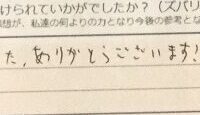 けられていかがでしたか？（ズバリ
想が、私達の何よりの力となり今後の参考とな
た、ありがとうございます!